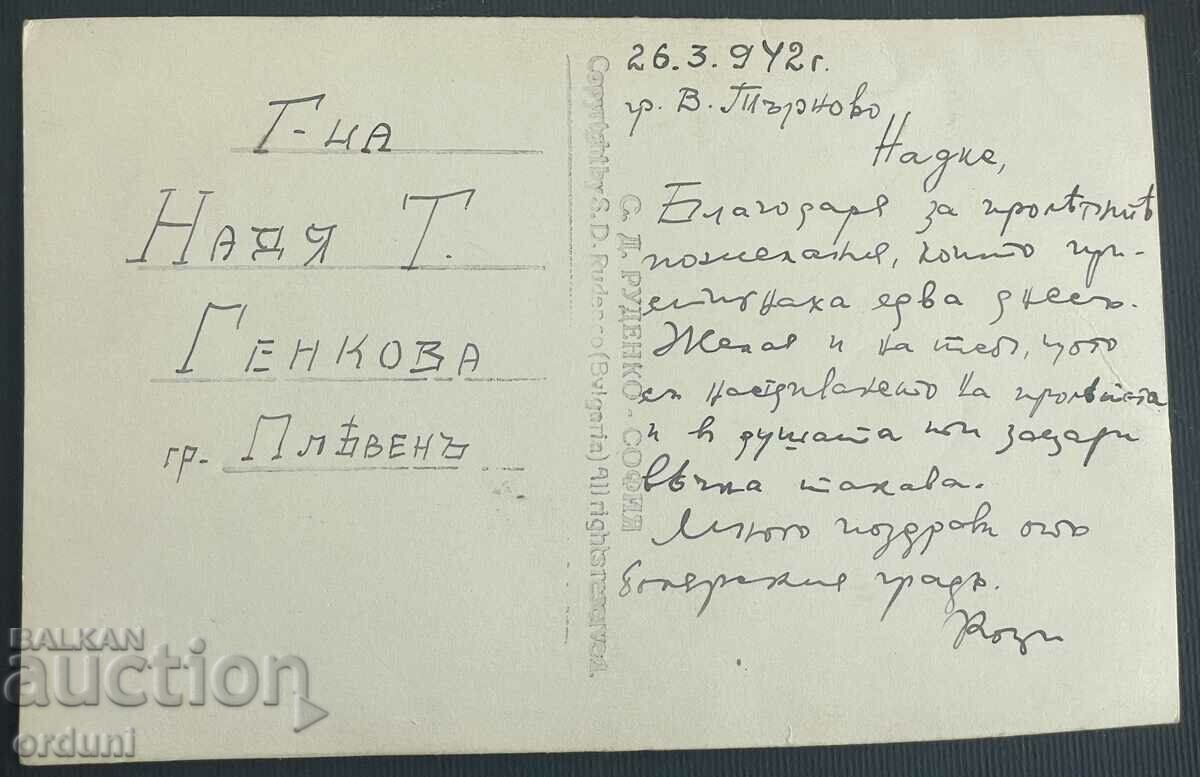 Г-ца
НАДЯ Т.
ГЕНКОВА
гр. ПЛѢВЕНЪ
С. Д. РУДЕНКО - СОФИЯ
Copyright by S. D. Rudenco (Bulgaria) All rights reserved.
26.3.942 г.
гр. В. Търново
Надке,
Благодаря за пролѣтнитѣ
пожелания, които при-
стигнаха едва днесъ.
Желая и на тебъ, щото
съ настѫпването на пролѣтьта
и в душата ти зацари
вѣчна такава.
Много поздрави отъ
болярския градъ.
BALKAN
auction
orduni